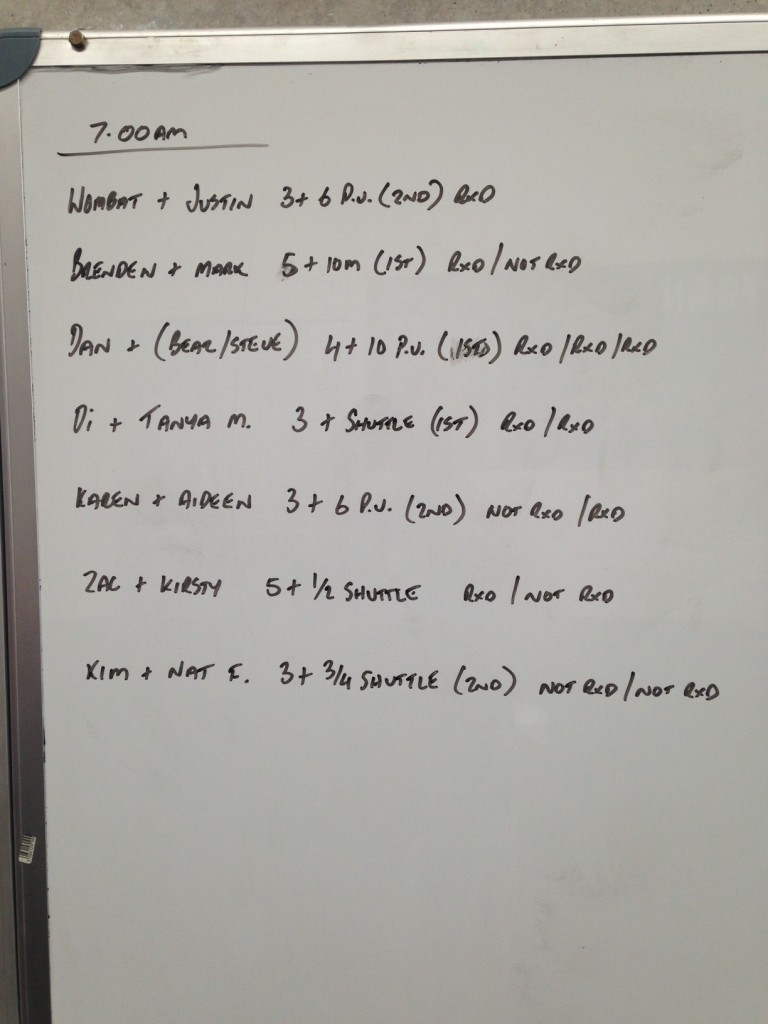 7.00AM
WOMBAT + JUSTIN 3+ 6 P.U. (2ND) RXD
BRENDEN + MARK 5 + 10M (1ST) RXD / NOT RXD
DAN + (BEAR/STEVE) 4 + 10 P.U. (1ST) RXD / RXD / RXD
Di + TANYA M. 3 + SHUTTLE (1ST) RXD / RXD
KAREN + AIDEEN 3 + 6 P.U. (2ND) NOT RXD / RXD
ZAC + KIRSTY 5 + 1/2 SHUTTLE RXD / NOT RXD
KIM + NAT F. 3 + 3/4 SHUTTLE (2ND) NOT RXD / NOT RXD